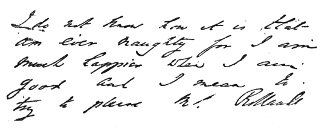 I do not know how it is that
am ever naughty for I am
much happier when I am
good and I mean to
try to please Mr.